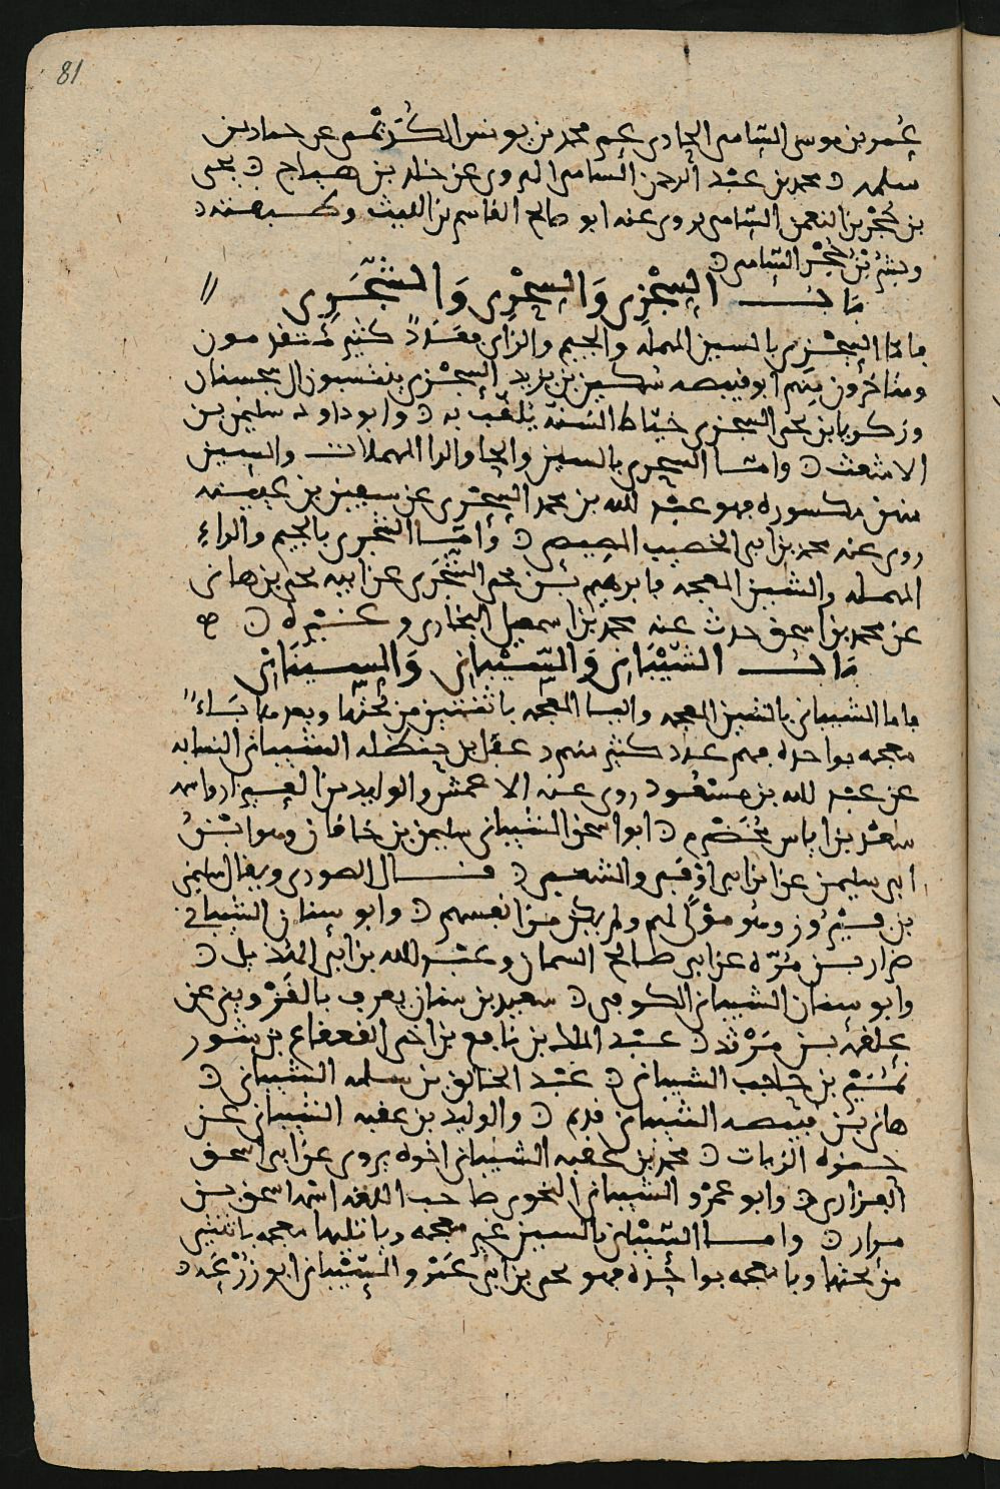 81
عُمر بن موسى السّامى الحادى عم محمد بن يونس الكُدَيْمى عن حماد بن
سلمه ن محمد بن عبْد الرحمن السامى الهروى عن خلد بن هياج ن يحيى
بن حُجْر بن النعمن السّامى يروى عنه ابو صالح القاسم بن الليث وطبقته ن
وبشْر بْن حُجْر السّامى ن
بَاب السِّجْزِى وَالسِّحْرِى وَالشَّجَرِى
فاما السِّجْزى بالسين المهمله والجيم والزاى فعَدَدٌ كثير متقدمون
ومتاخرون منهم ابو قبيصه سُكين بن يزيد السِّجْزى ينتسبون الى سجستان
وزكريا بن يحيى السجزى خيّاط السُنّة يُلقّب به ن وابو داود سليمن بن
الاشعث ن وامّا السِحرى بالسين والحا والرا المهملات والسين
منهن مكسوره فهو عبْد الله بن محمد السِّحْرى عن سفين بن عيينه
روى عنه محمد بن ابى الخصيب المصيصى ن وَأمّا الشجَرى بالجيم والراءِ
المهمله والشين المعجمه فابرهيم بْن يحيى الشَّجَرى عن ابيه يحيى بن هانى
عن محمد بن اسحق حدث عنه محمد بن اسمعيل البخارى وغيْره ن
بَاب الشَّيْبَانِى وَالسَّيْبَانِى وَالسِينَانِى
فاما الشيبانى بالشين المعجمه واليا المعجمه باثنتين من تحتها وبعدها بَاءٌ
معجمه بواحده فهم عدد كثير منهم دغفل بن حنظله الشيبانى النسابه
عن عبْد الله بن مسْعُود روى عنه الاعمش والوليد بن العيزار واسمه
سعْد بن اياس مُخَضْرم ن ابو اسحق الشيبانى سليمن بن خاقان وهو ابْنُ
ابى سليمن عن ابن ابى اوْفَى والشعبى ن قال الصورى ويقال سليمن
بن فيْرُوز وهو موْلىً لهم ولم يكن من انفسهم ن وابو سِنان الشيبانى
ضرار بن مُرّه عن ابى صالح السمان وعبْد الله بن ابى الهُذيل ن
وابو سنان الشيبانى الكوفى ن سعيد بن سنان يعرف بالقَزْوينى عن
علقمه بن مَرْثد ن عبْد الملك بن نافع بن اخى القعقاع بن شور
نُسَيْر بن حاجب الشيبانى ن عبْد الخالق بن سلمه الشيبانى ن
هانى بْن قبيصه الشيبانى قديم ن والوليد بن عقبه الشيبانى عن
حمزه الزيات ن محمد بن عقبه الشيبانى اخوه يروى عن ابى اسحق
الفزارى ن وابو عمْرو الشيبانى النحوى صاحب اللغه اسمه اسحق بن
مرار ن وامّا السَّيْبانى بالسين غير معجمه ويا تليها معجمه باثنتين
من تحتها وبا معجمه بواحده فهو يحيى بن ابى عَمْرو السَّيْبانى ابو زُرْعَه ن